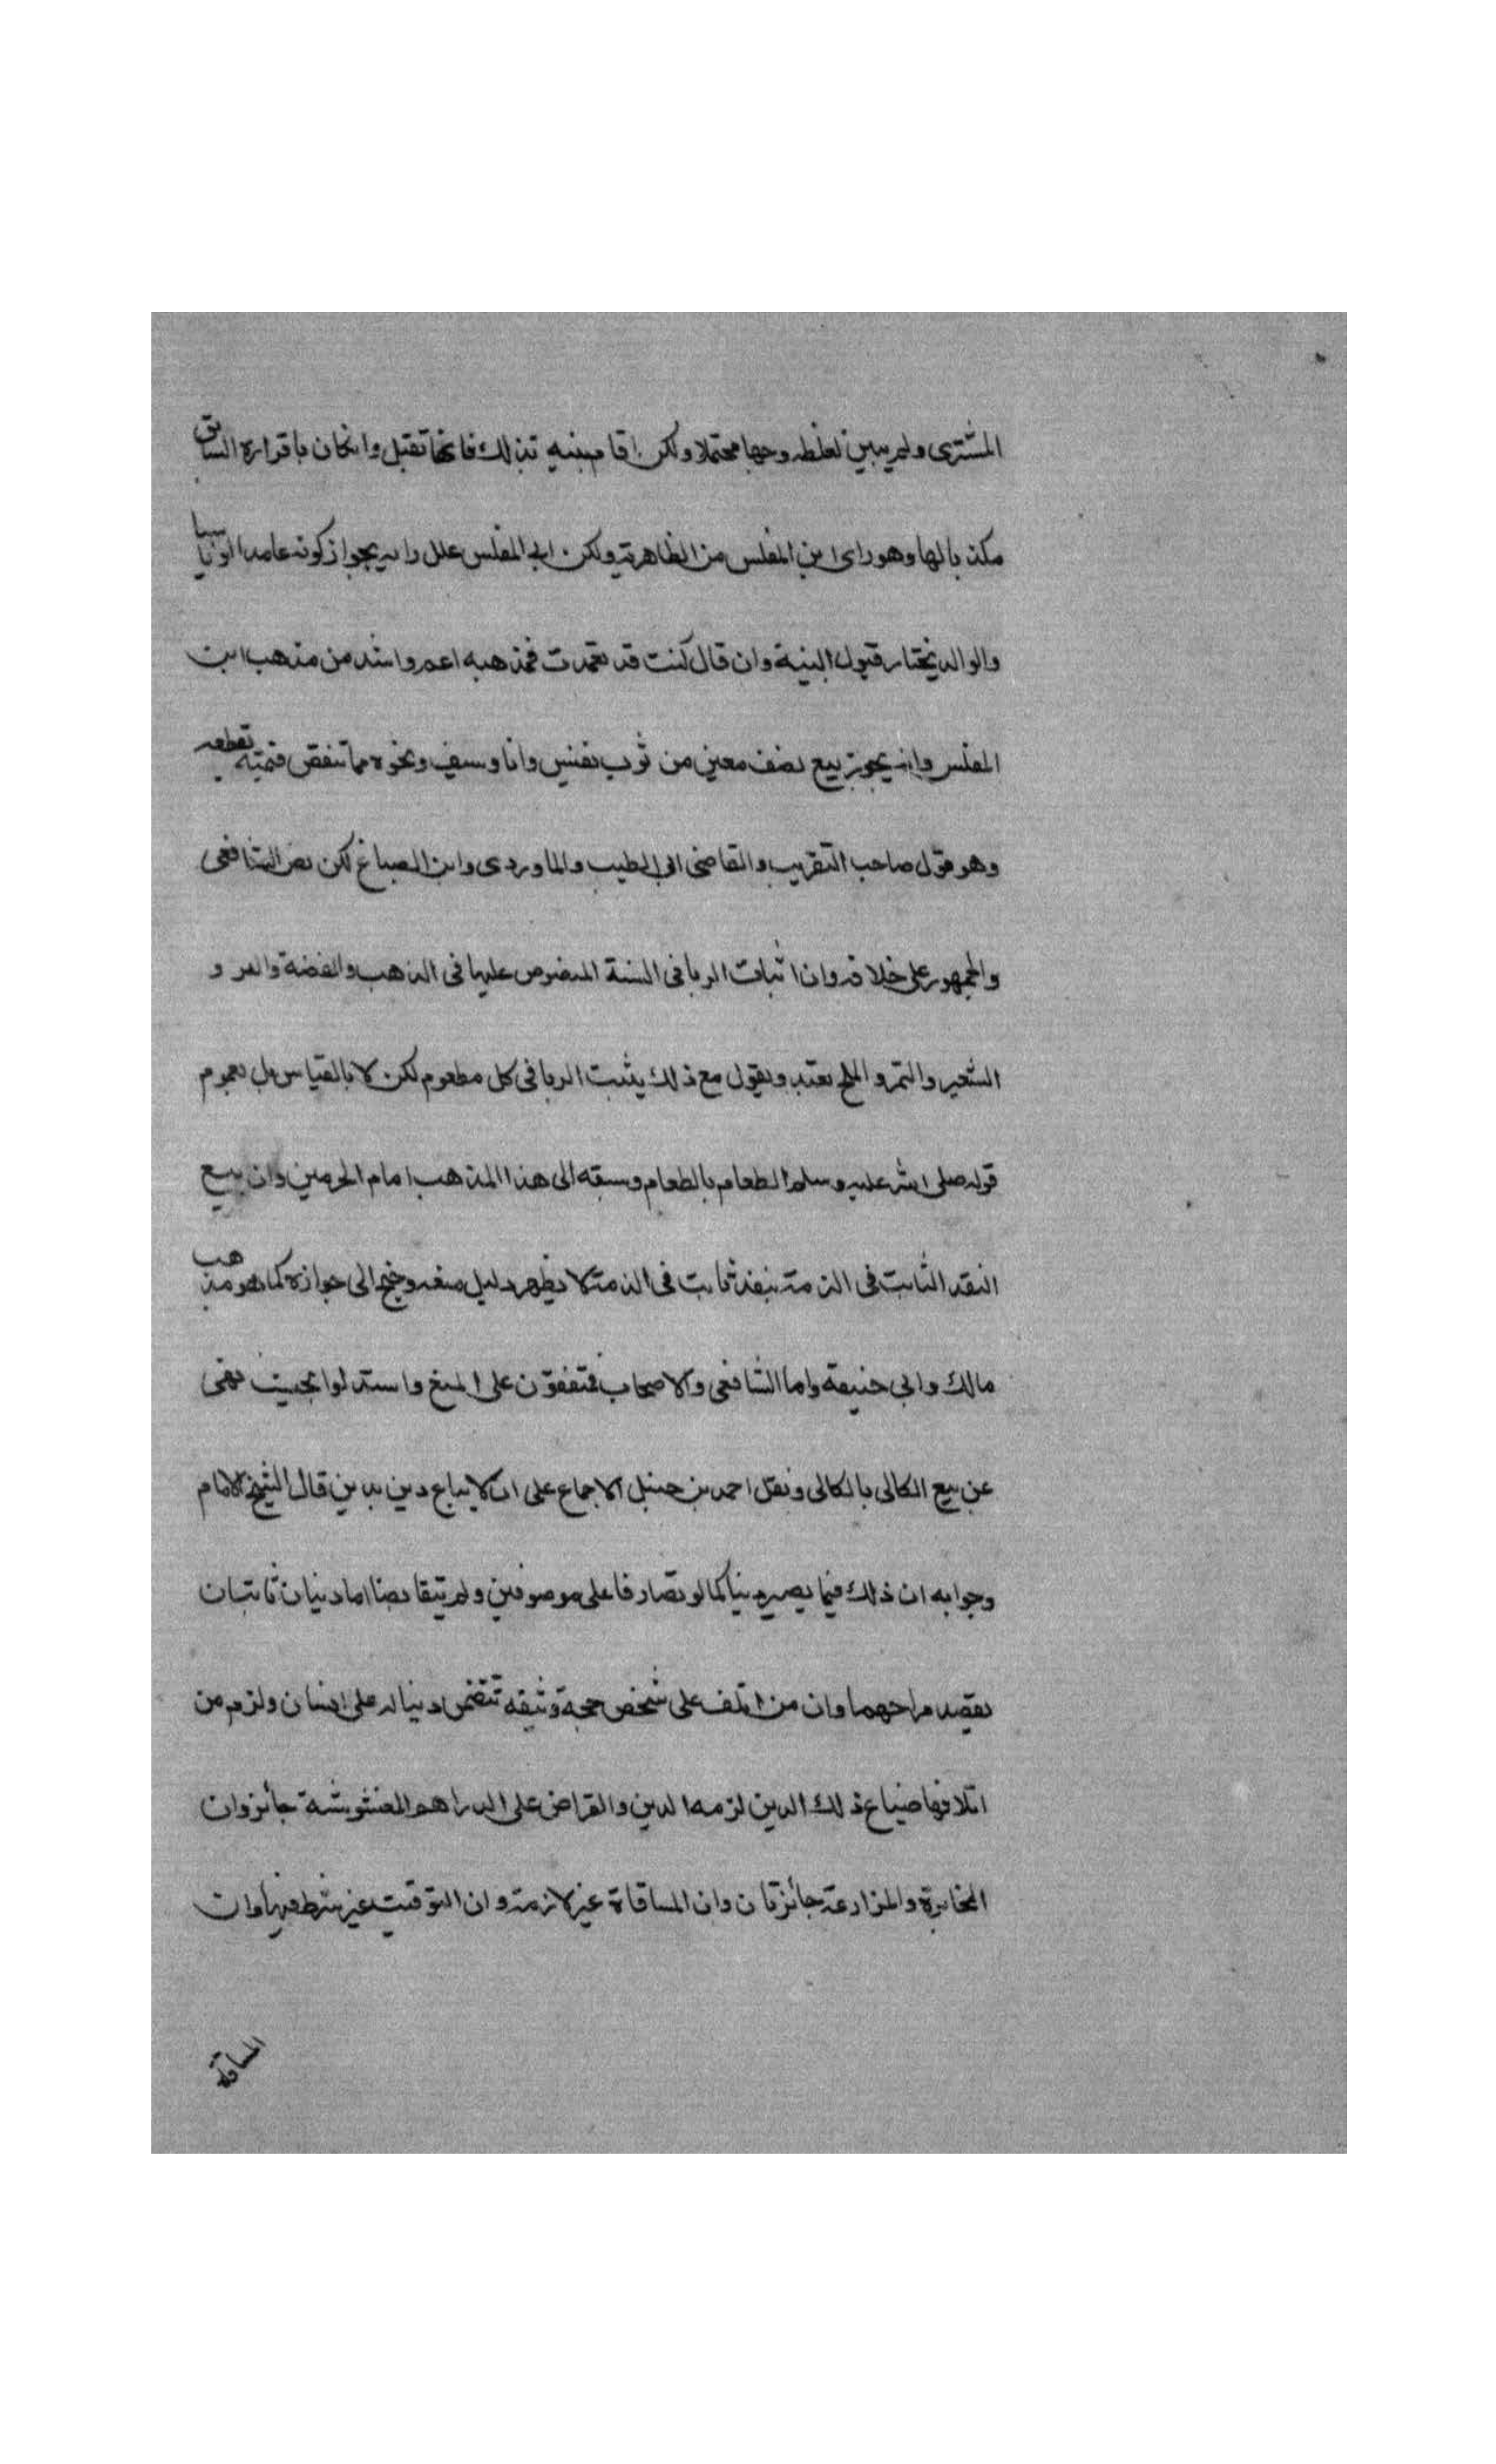 المشترى ولم يبين لغلطه وجها محتملا ولكن اقام بينة بذلك فانها تقبل وانكان باقراره السابق
مكذبا لها وهو راى ابن المغلس من الظاهرية ولكن ابن المغلس علل رايه بجواز كونه عامدا او ناسيا
والوالد يختار قبول البينة وان قال كنت قد تعمدت فمذهبه اعم واشد من مذهب ابن
المغلس وانه يجوز بيع نصف معين من ثوب نفيس وانا وسيف ونحوه مما تنقص قيمته بقطعه
وهو قول صاحب التقريب والقاضى ابى الطيب والماوردى وابن الصباغ لكن نص الشافعى
والجمهور على خلافه وان اثبات الربا فى الستة المنصوص عليها فى الذهب والفضة والبر و
الشعير والتمر والملح تعبد ويقول مع ذلك يثبت الربا فى كل مطعوم لكن لا بالقياس بل بعموم
قوله صلى الله عليه وسلم الطعام بالطعام وسبقه الى هذا المذهب امام الحرمين وان بيع
النقد الثابت فى الذمة بنقد ثابت فى الذمة لا يظهر دليل منعه وجنح الى جوازه كما هو مذهب
مالك وابى حنيفة واما الشافعى والاصحاب فمتفقون على المنع واستدلوا بحديث نهى
عن بيع الكالى بالكالى ونقل احمد بن حنبل الاجماع على ان لا يباع دين بدين قال الشيخ الامام
وجوابه ان ذلك فيما يصير دينا كما لو تصارفا على موصوفين ولم يتقابضا اما دينان ثابتان
يقصد طرحهما وان من اتلف على شخص حجة وثيقة تتضمن دينا له على انسان ولزم من
اتلافها ضياع ذلك الدين لزمه الدين والقراض على الدراهم المغشوشة جائز وان
المخابرة والمزارعة جائزتان وان المساقاة غير لازمة وان التوقيت غير شرط فيها وان
المساقاة